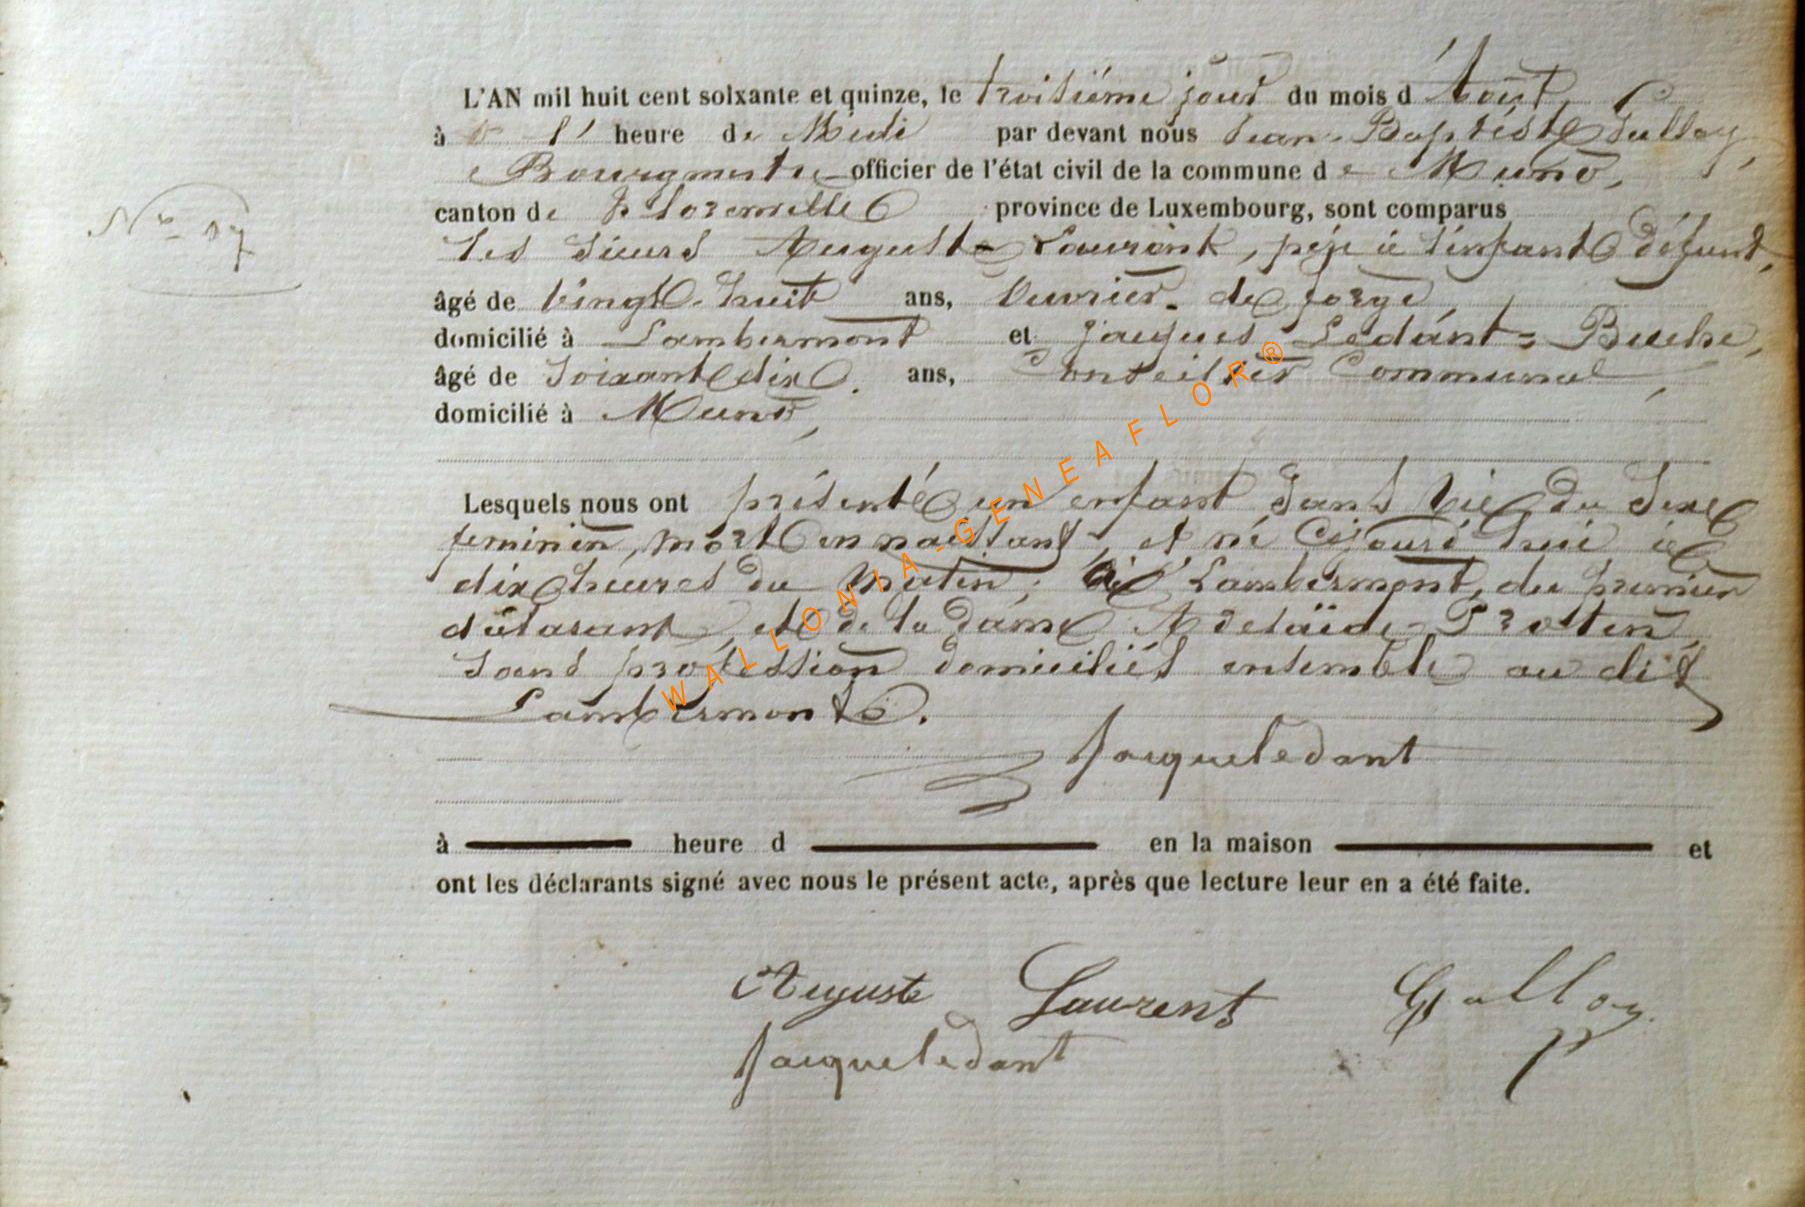 L'AN mil huit cent soixante et quinze, le troisième jour du mois d'Août,
à l' heure de Midi par devant nous Jean-Baptiste Gulloy,
Bourgmestre officier de l'état civil de la commune de Muno,
N° 17
canton de Florenville province de Luxembourg, sont comparus
les sieurs Auguste Laurent, père à l'enfant défunt,
âgé de vingt-huit ans, ouvrier de forge,
domicilié à Lambermont et Jacques Ledant-Buche,
âgé de soixante dix ans, Conseiller Communal,
domicilié à Muno,
Lesquels nous ont présenté un enfant sans vie du sexe
feminin, mort en naissant, et né cejourd'hui à
dix heures du matin, à Lambermont, du premier
déclarant, et de la dame Adelaïde Proten,
sans profession domiciliés ensemble au dit
Lambermont.
Jacqueledant
à heure d en la maison et
ont les déclarants signé avec nous le présent acte, après que lecture leur en a été faite.
Auguste Laurent Gulloy
Jacqueledant
WALLONIA-GENEAFLOR®